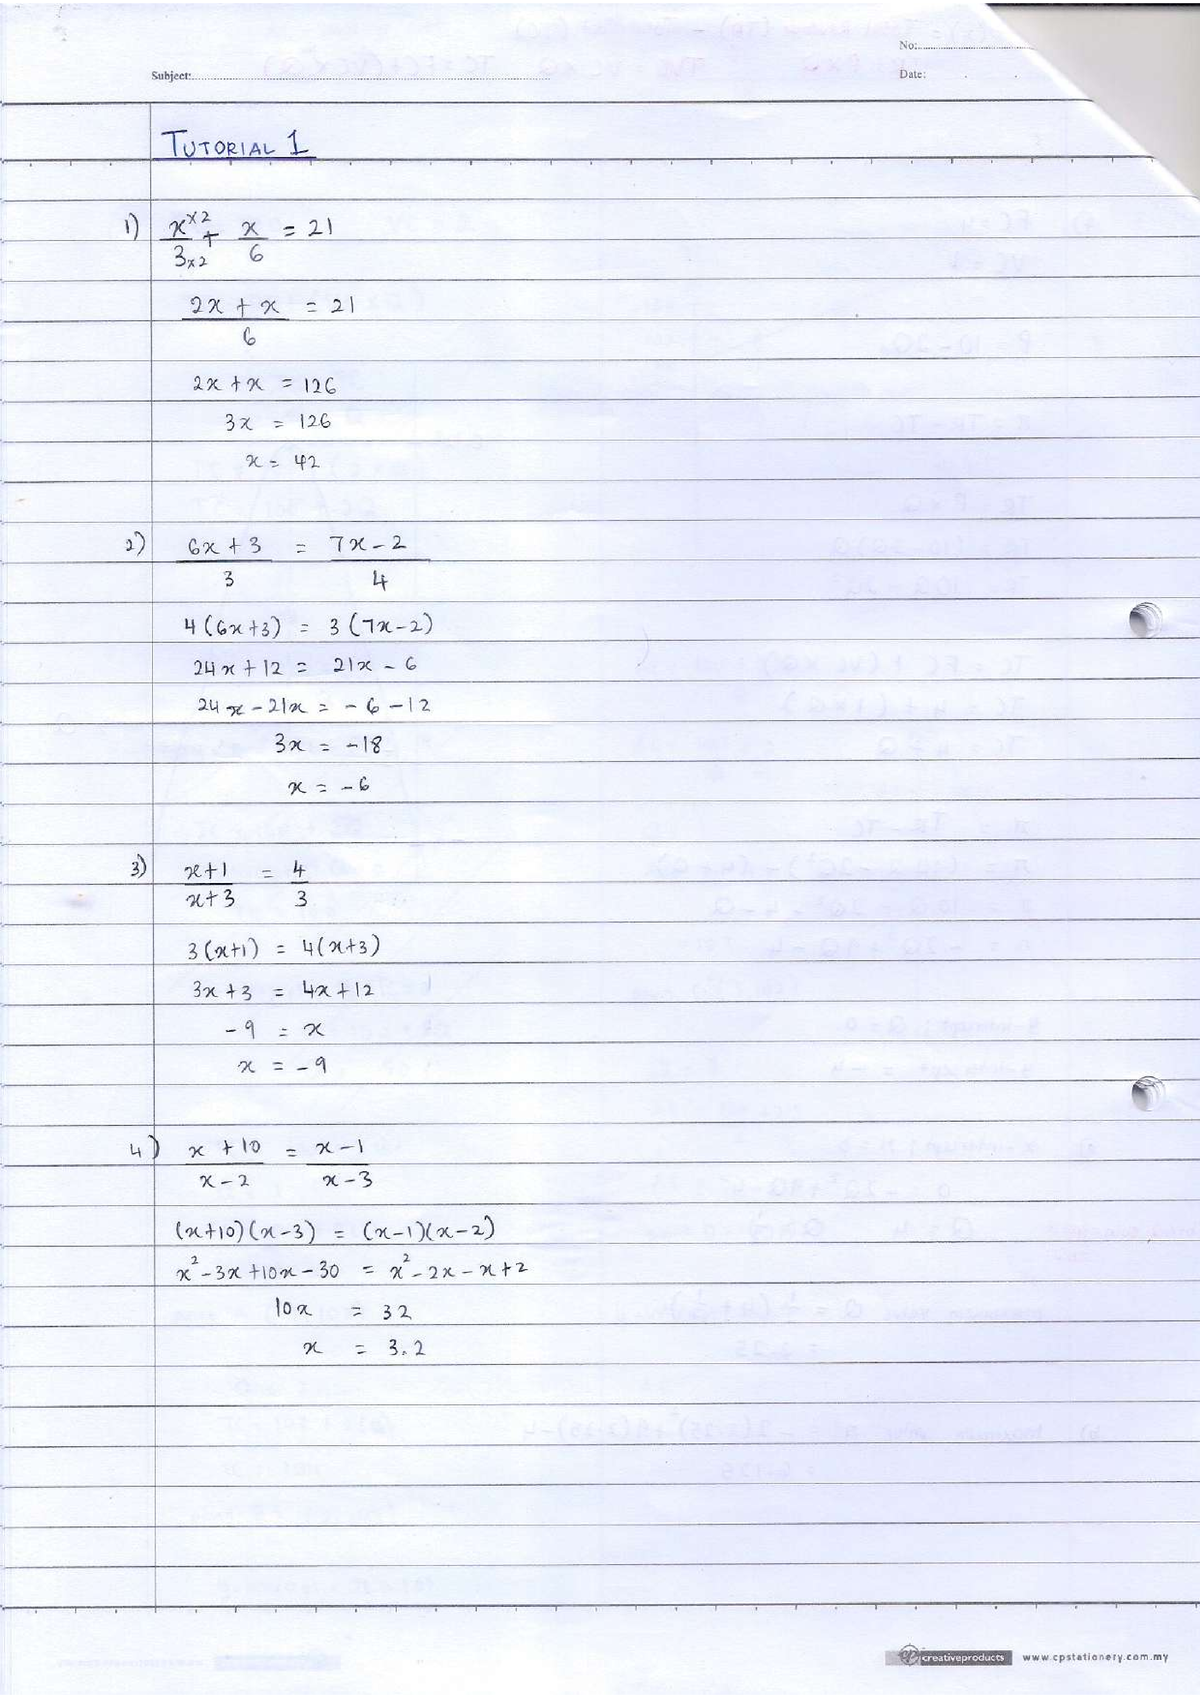 No:
Subject:
Date:
TUTORIAL 1
1) x^×2/3×2 + x/6 = 21
2x + x/6 = 21
2x + x = 126
3x = 126
x = 42
2) 6x + 3/3 = 7x - 2/4
4(6x+3) = 3(7x-2)
24x + 12 = 21x - 6
24x - 21x = -6 - 12
3x = -18
x = -6
3) x+1/x+3 = 4/3
3(x+1) = 4(x+3)
3x + 3 = 4x + 12
-9 = x
x = -9
4) x + 10/x - 2 = x - 1/x - 3
(x+10)(x-3) = (x-1)(x-2)
x² - 3x + 10x - 30 = x² - 2x - x + 2
10x = 32
x = 3.2
cp creativeproducts www.cpstationery.com.my